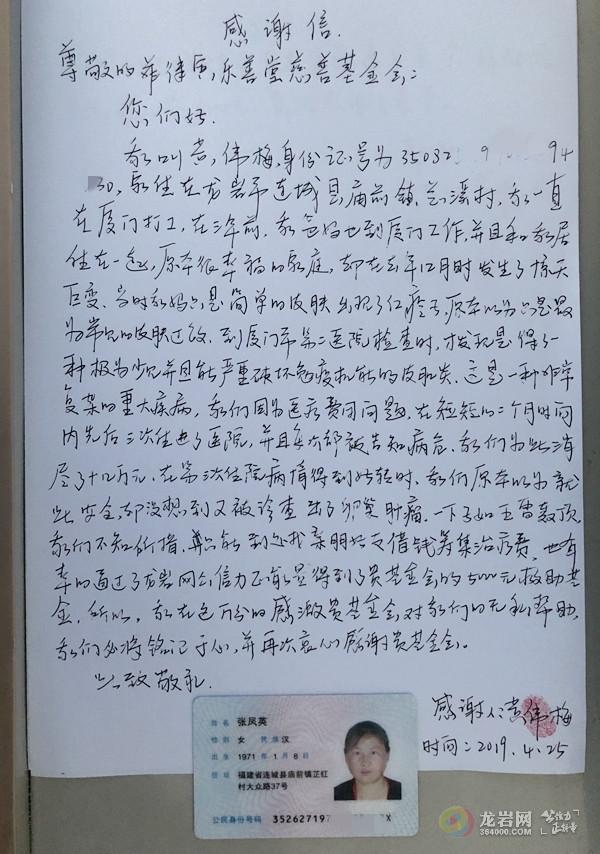 感谢信.
尊敬的菲律宾,乐善堂慈善基金会:
您们好.
我叫黄,伟梅,身份证,号为35082 9 94
30,家住在龙岩市连城县,庙前镇,芷溪村,我一直
在厦门打工,在三年前.我爸妈也到厦门工作,并且和我居
住在一起,原本很幸福的家庭,却在去年12月时发生了惊天
巨变.当时我妈只是简单的皮肤出现了红疹子,原本以为只是最
为常见的皮肤过敏.到厦门市第二医院检查时,才发现是得了一
种极为少见并且能严重破坏免疫机能的皮肌炎.这是一种非常
复杂的重大疾病,我们因为医疗费用问题.在短短的二个月时间
内先后三次住进了医院,并且每次都被告知病危.我们为此消
尽了十几万元.在第三次住院病情得到好转时.我们原本以为就
此安全,却没想到又被诊查出了卵巢肿瘤.一下子如五雷轰顶,
我们不知所措,只能到处找亲朋好友借钱筹集治疗费.也有
幸的通过了龙岩网公信力正能量得到了贵基金会的5000元救助基
金.所以,我在区万分的感激贵基金会,对我们的无私帮助.
我们必将铭记于心,并再次衷心感谢贵基金会。
此致敬礼.
感谢人:黄伟梅
时间:2019.4.25
姓名 张凤英
性别 女 民族 汉
出生 1971年1月8日
住址 福建省连城县庙前镇芷红
村大众路37号
公民身份号码 352627197 X
龙岩网
364000.com
公信力
正能量